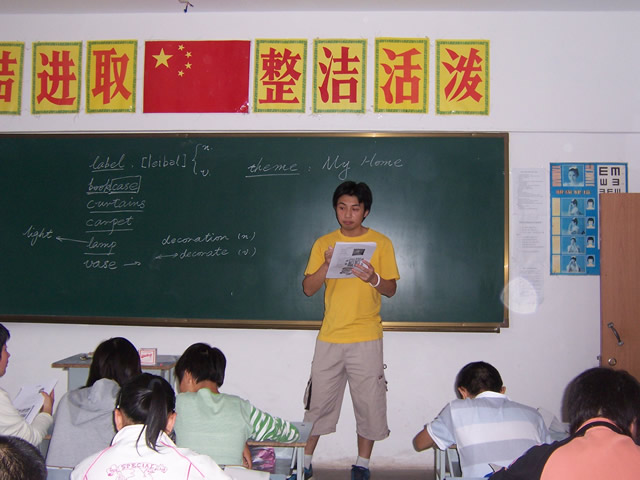 洁进取
整洁活泼
label. [leibel] { n.
v.
theme: My Home
bookcase
curtains
carpet
light
lamp
decoration (n)
vase
decorate (v)
SPECIAL